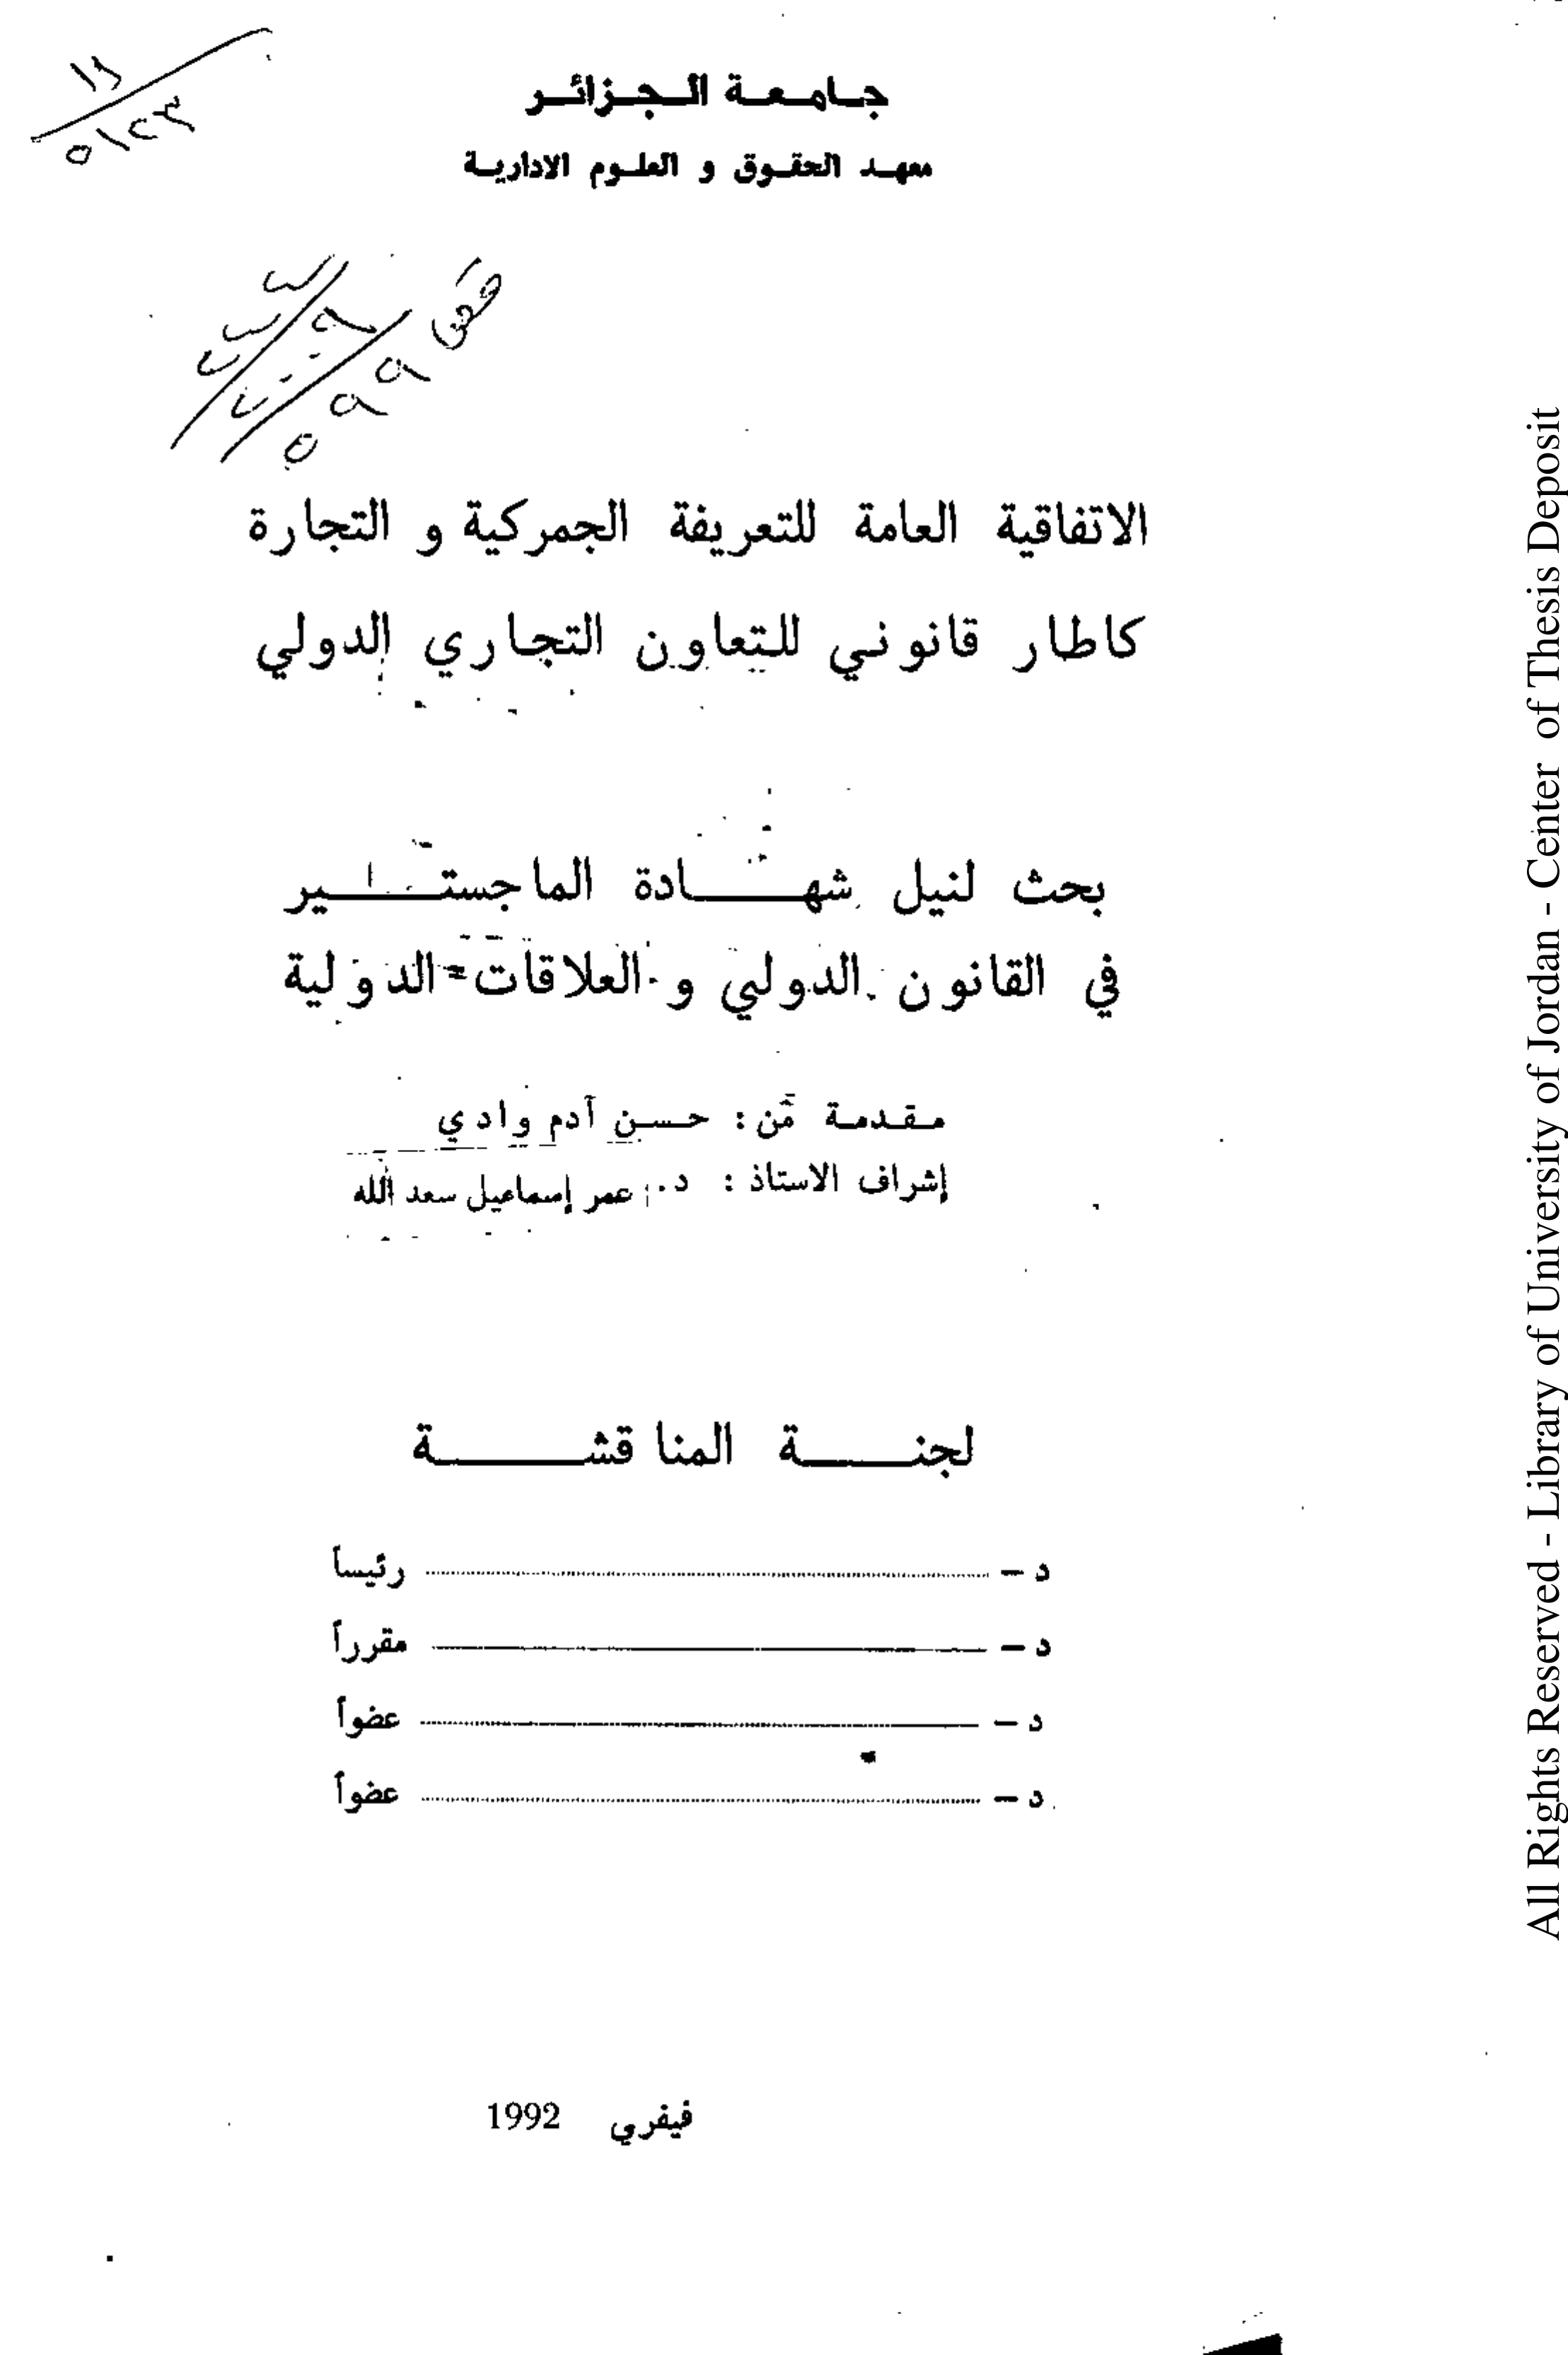 جامعة الجزائر
معهد الحقوق و العلوم الادارية
الاتفاقية العامة للتعريفة الجمركية و التجارة
كاطار قانوني للتعاون التجاري الدولي
بحث لنيل شهادة الماجستير
في القانون الدولي و العلاقات الدولية
مقدمة من : حسن آدم وادي
إشراف الاستاذ : د. عمر إسماعيل سعد الله
لجنة المناقشة
د – رئيساً
د – مقرراً
د – عضواً
د – عضواً
فيفري 1992
All Rights Reserved - Library of University of Jordan - Center of Thesis Deposit